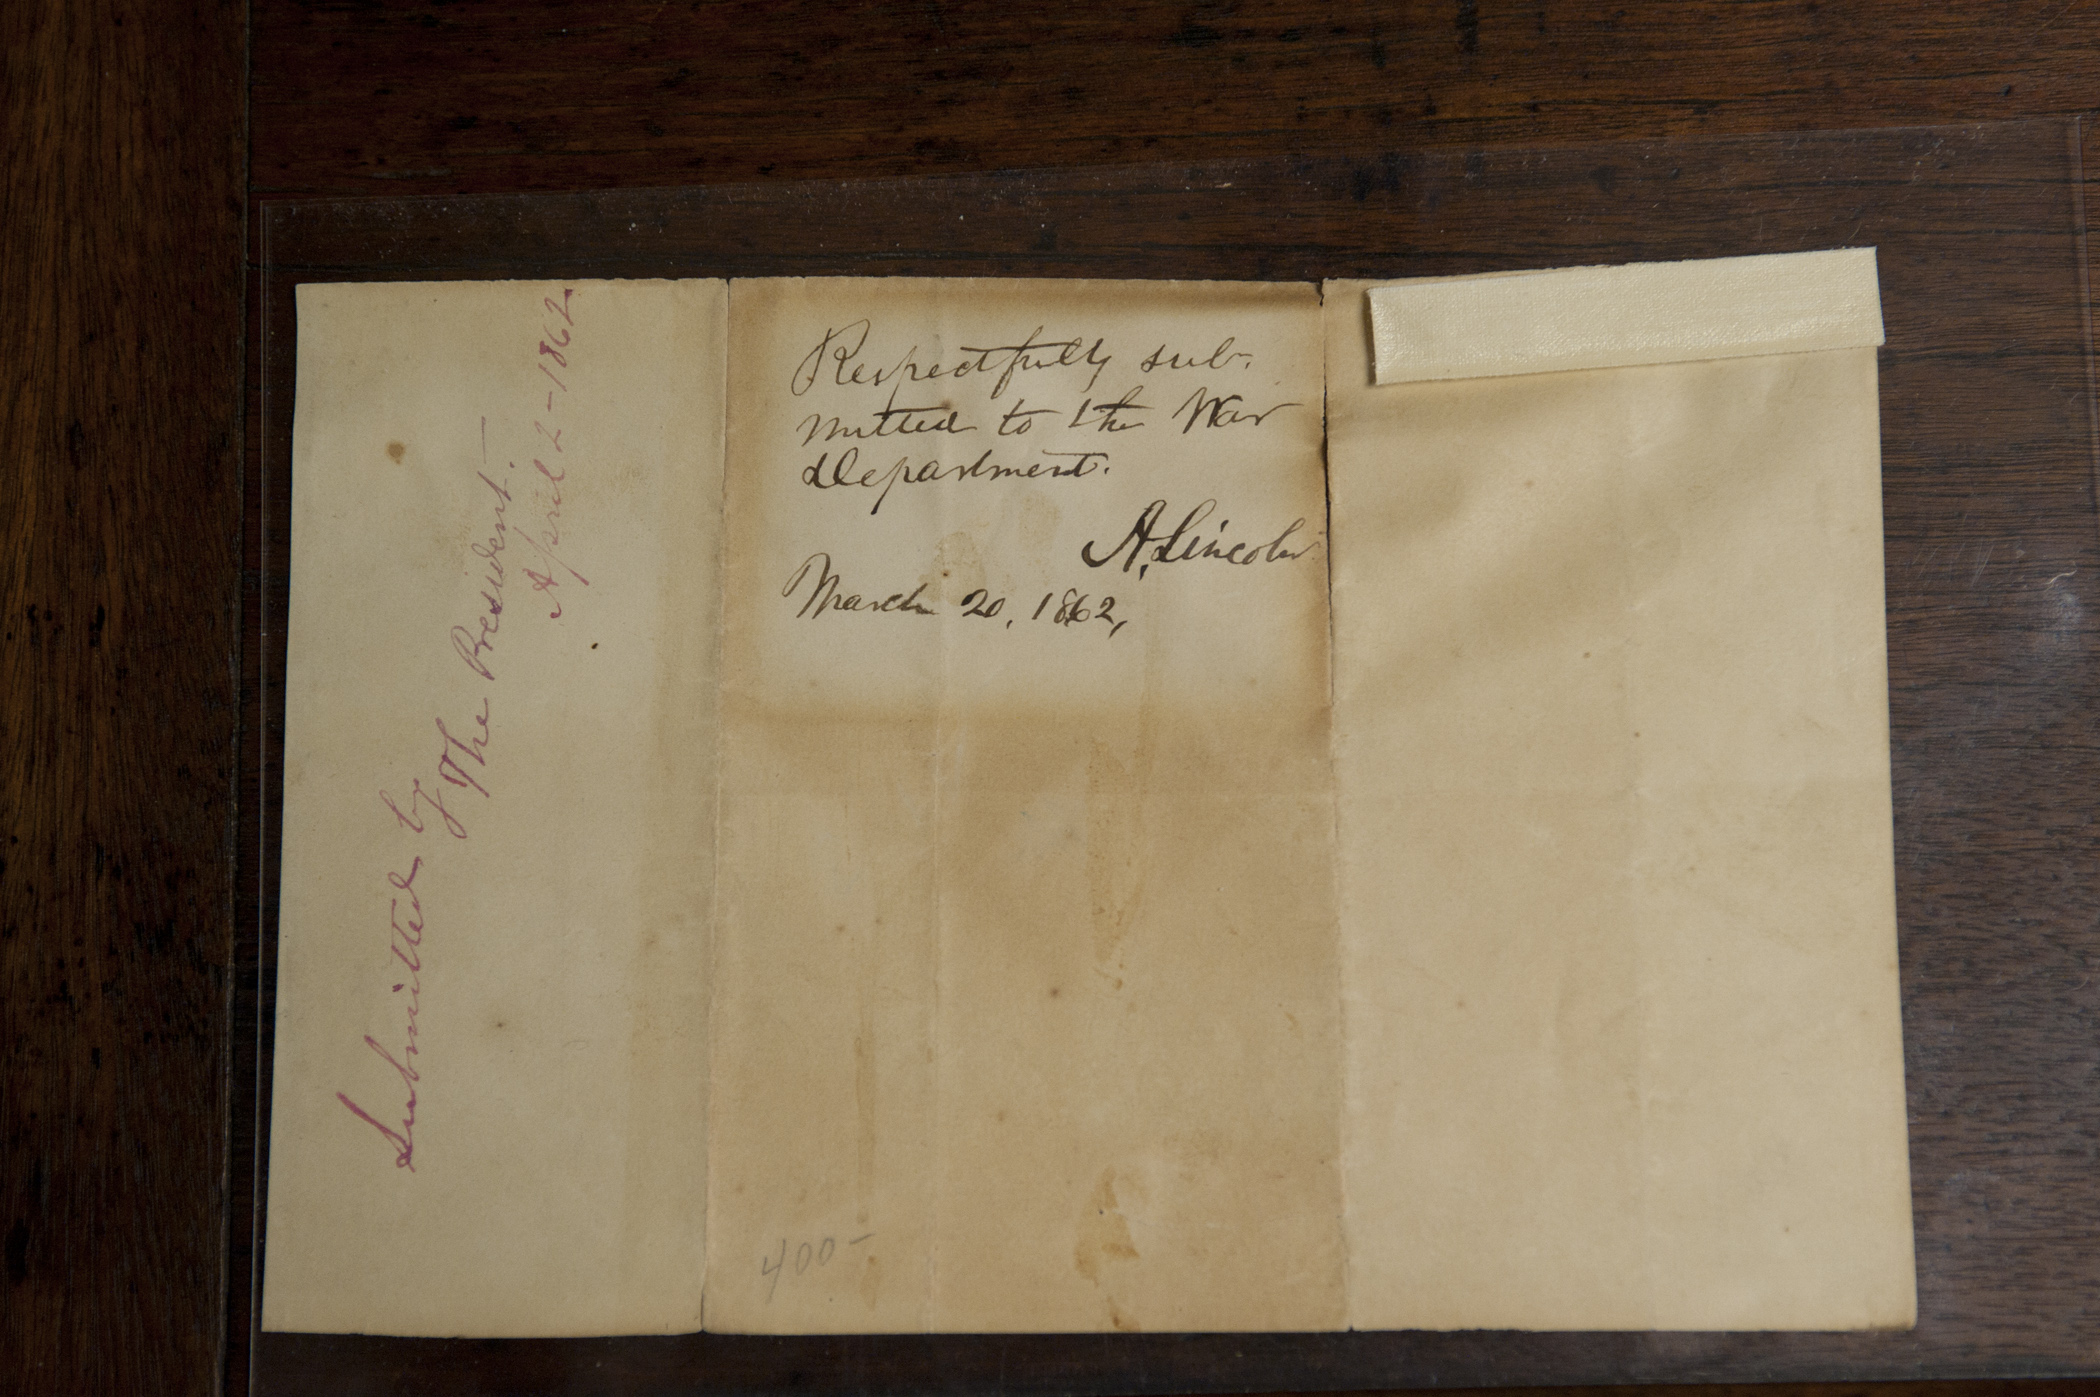 Submitted by
The President.—
April 2–1862
Respectfully sub-
mitted to the War
Department.
A. Lincoln
March 20, 1862,
400–